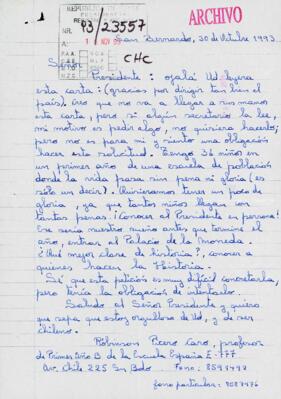 ARCHIVO
93/23557
NR.
1 NOV 93
P.A.A.
M.Z.C.
CHC
San Bernardo, 30 de Octubre 1993.
Señor
Presidente: ojalá Ud. leyera
esta carta: (gracias por dirigir tan bien el
país). Creo que no va a llegar a sus manos
esta carta, pero si algún secretario la lee,
mi motivo es pedir algo, no quisiera hacerlo;
pero no es para mí y siento una obligación
hacer esta solicitud. Tengo 36 niños en
un primer año de una escuela de población
donde la vida pasa sin pena ni gloria (es
sólo un decir). Quisiéramos tener un poco de
gloria, ya que tantos niños llegan con
tantas penas. ¡Conocer al Presidente en persona!
Ese sería nuestro sueño antes que termine el
año, entrar al Palacio de la Moneda.
¿Qué mejor clase de historia?, conocer a
quienes hacen la Historia.
Sé que esta petición es muy difícil concretarla,
pero tenía la obligación de intentarlo.
Saludo al Señor Presidente y quiero
que sepa que estoy orgulloso de Ud. y de ser
Chileno.
Robinson Pizero Caro, profesor
de Primer Año B de la Escuela España E-777
Av. Chile 225 Sn Bdo. Fono: 8593492
fono particular: 8587476